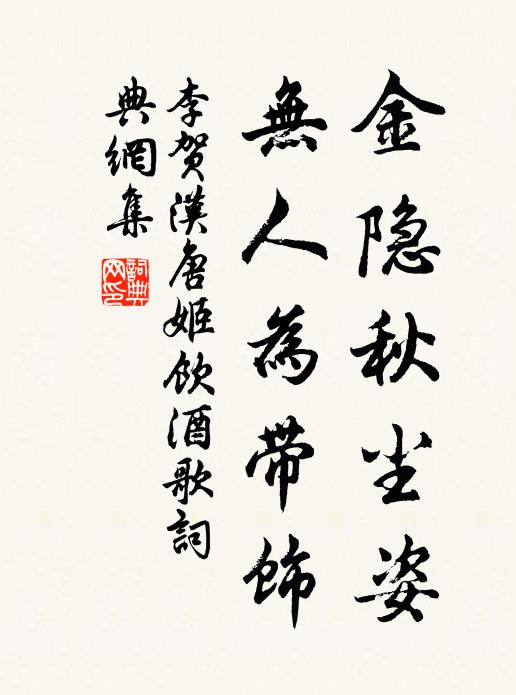 金隐秋尘姿
無人為带飾
李贺漢唐姬飲酒歌詞
典網集
詞典
网印